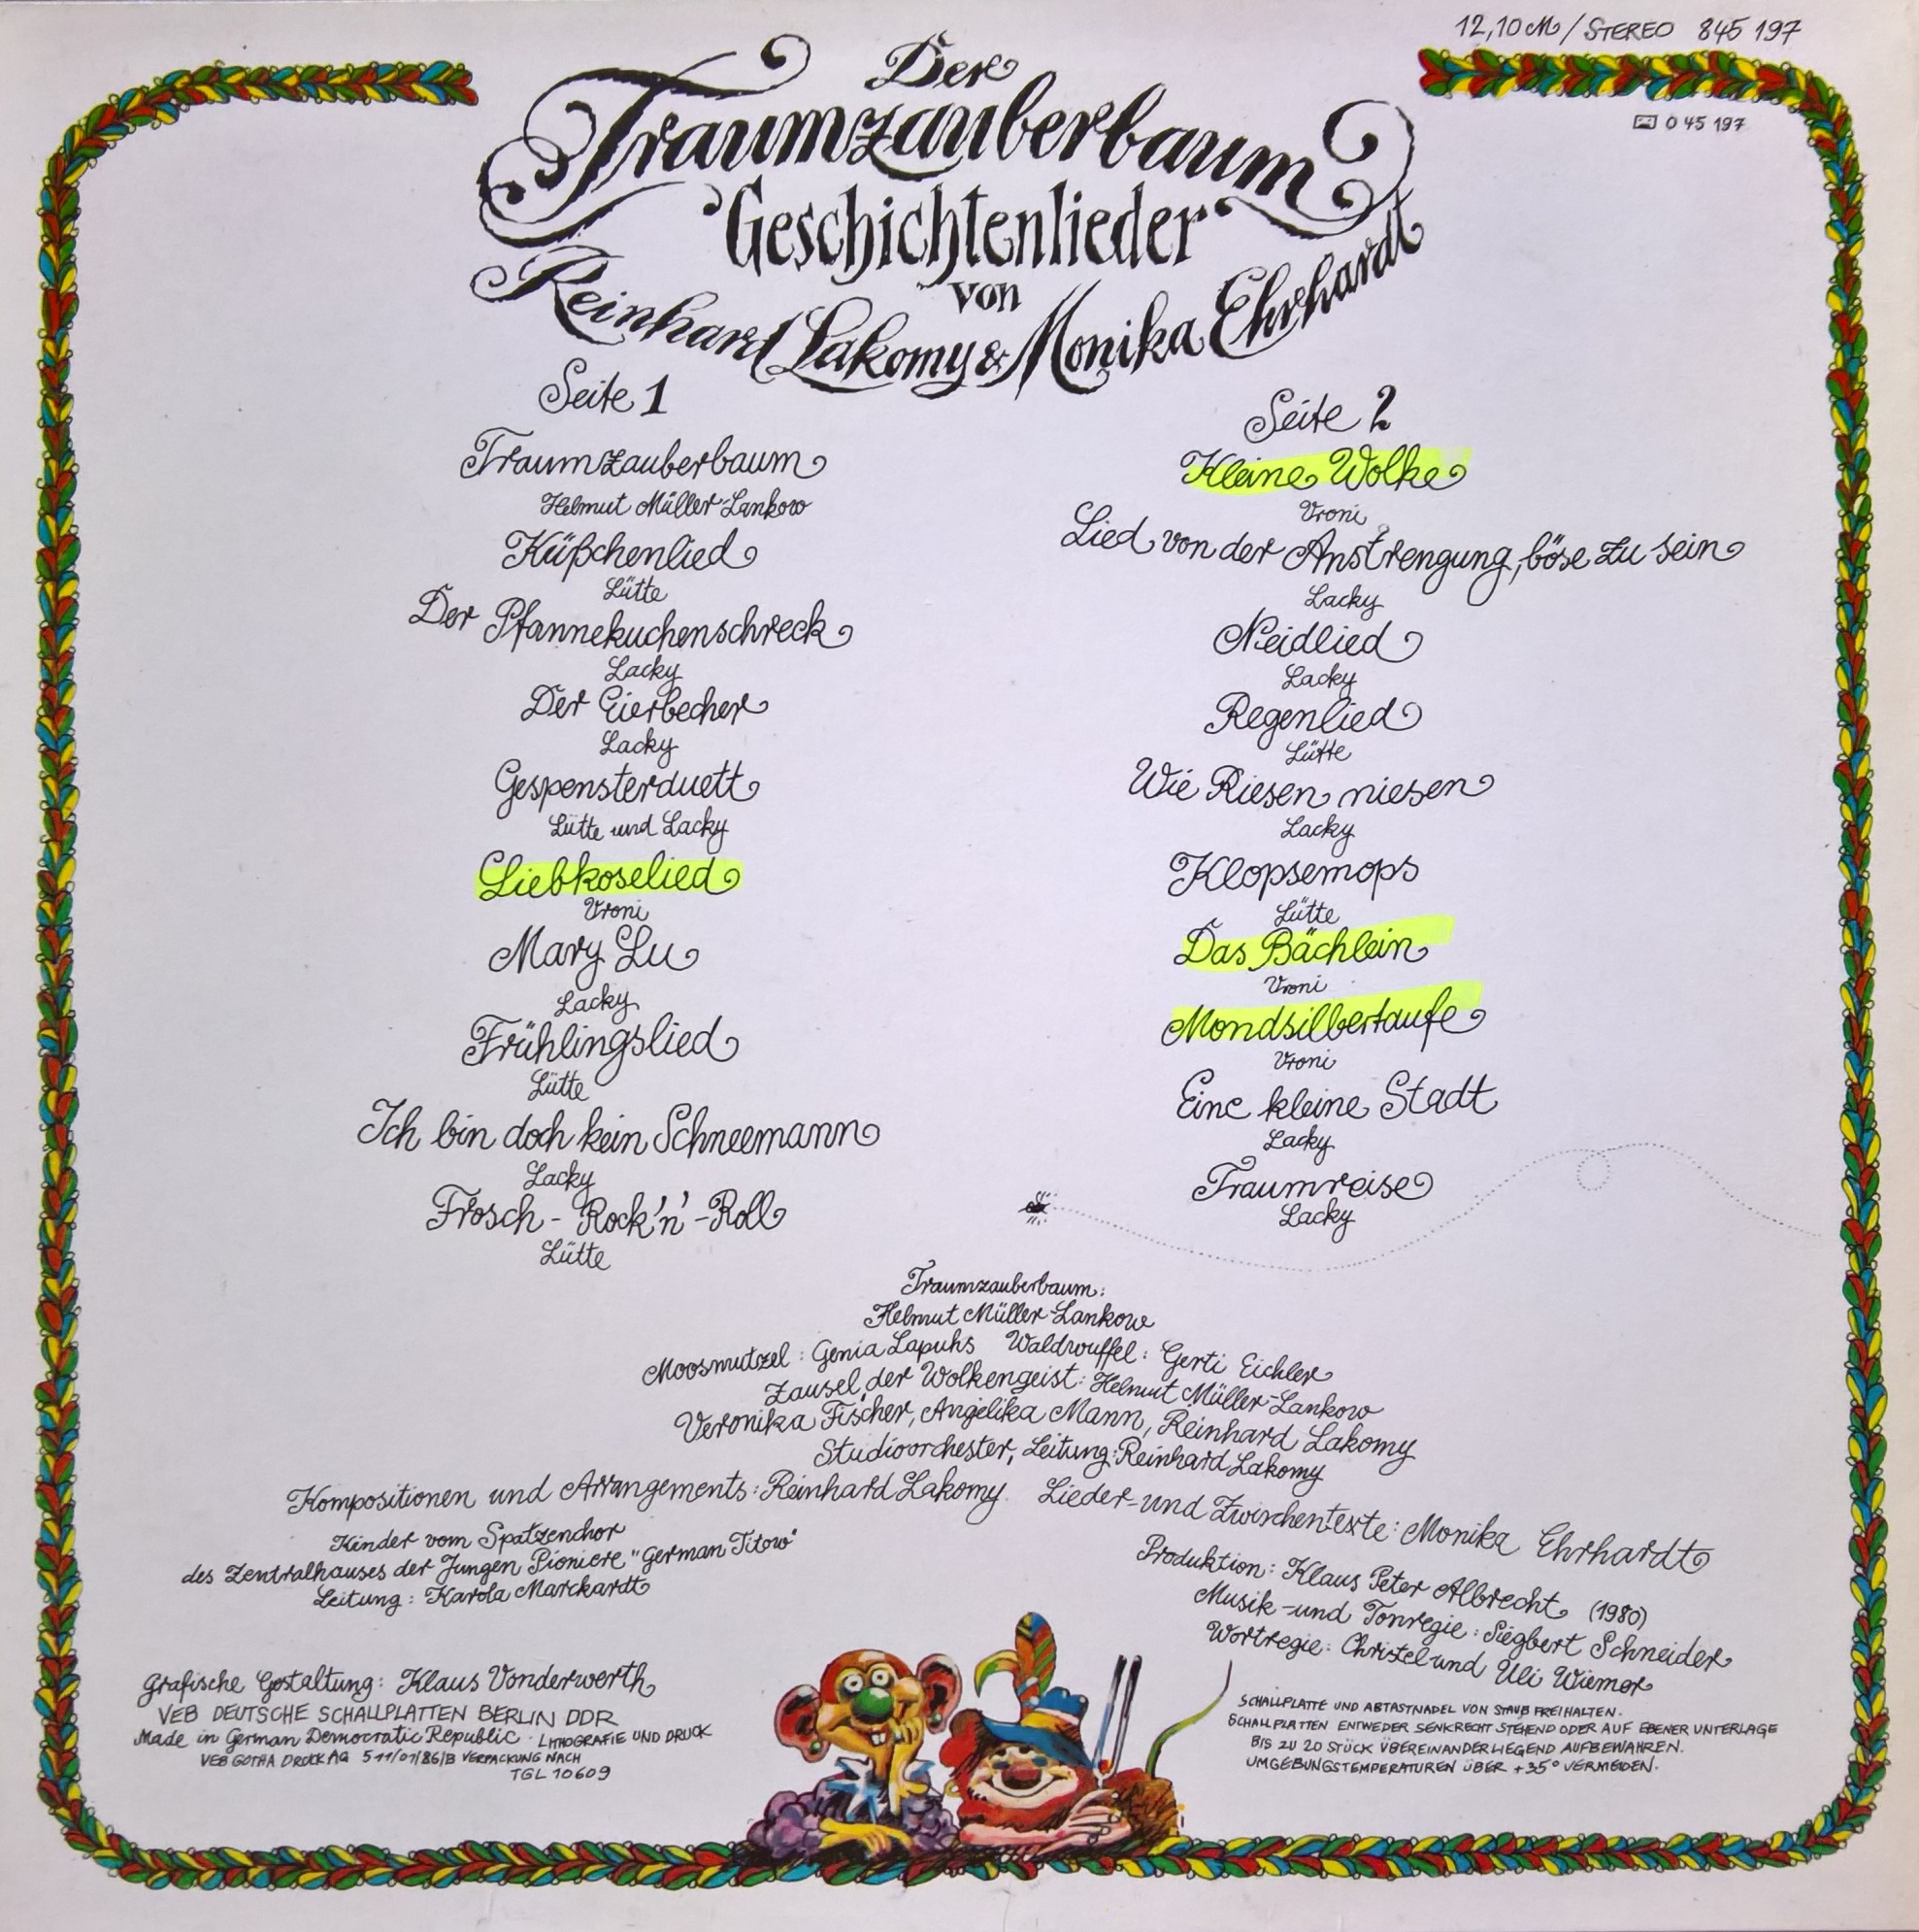 12,10 M / STEREO 845 197
0 45 197
Der
Traumzauberbaum
Geschichtenlieder
von
Reinhard Lakomy & Monika Ehrhardt
Seite 1
Traumzauberbaum
Helmut Müller-Lankow
Küßchenlied
Lütte
Der Pfannekuchenschreck
Lacky
Der Eierbecher
Lacky
Gespensterduett
Lütte und Lacky
Liebkoselied
Vroni
Mary Lu
Lacky
Frühlingslied
Lütte
Ich bin doch kein Schneemann
Lacky
Frosch-Rock'n'-Roll
Lütte
Seite 2
Kleine Wolke
Vroni
Lied von der Anstrengung, böse zu sein
Lacky
Neidlied
Lacky
Regenlied
Lütte
Wie Riesen niesen
Lacky
Klopsemops
Lütte
Das Bächlein
Vroni
Mondsilbertaufe
Vroni
Eine kleine Stadt
Lacky
Traumreise
Lacky
Traumzauberbaum:
Helmut Müller-Lankow
Moosmutzel: Genia Lapuhs Waldwuffel: Gerti Eichler
Zausel, der Wolkengeist: Helmut Müller-Lankow
Veronika Fischer, Angelika Mann, Reinhard Lakomy
Studioorchester, Leitung: Reinhard Lakomy
Kompositionen und Arrangements: Reinhard Lakomy Lieder- und Zwischentexte: Monika Ehrhardt
Kinder vom Spatzenchor
des Zentralhauses der Jungen Pioniere "German Titow"
Leitung: Karola Marckardt
Produktion: Klaus Peter Albrecht (1980)
Musik- und Tonregie: Siegbert Schneider
Wortregie: Christel und Uli Wiemer
Grafische Gestaltung: Klaus Vonderwerth
VEB DEUTSCHE SCHALLPLATTEN BERLIN DDR
Made in German Democratic Republic · LITHOGRAFIE UND DRUCK
VEB GOTHA DRUCK AG 511/01/86/B VERPACKUNG NACH
TGL 10609
SCHALLPLATTE UND ABTASTNADEL VON STAUB FREIHALTEN.
SCHALLPLATTEN ENTWEDER SENKRECHT STEHEND ODER AUF EBENER UNTERLAGE
BIS ZU 20 STÜCK ÜBEREINANDERLIEGEND AUFBEWAHREN.
UMGEBUNGSTEMPERATUREN ÜBER +35° VERMEIDEN.